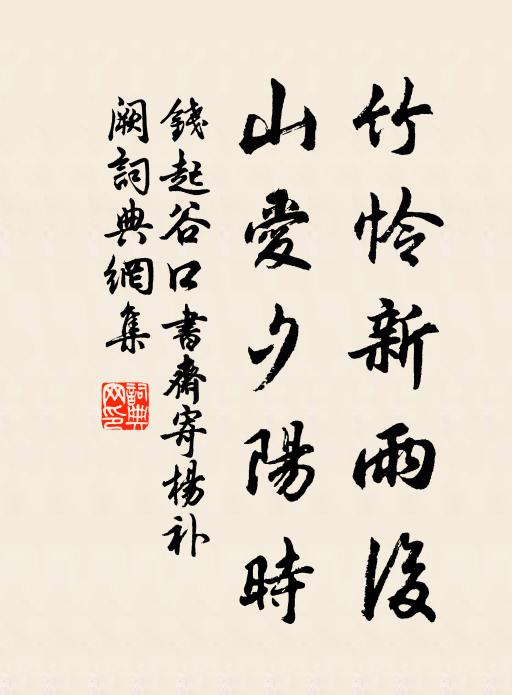 竹怜新雨後
山愛夕陽時
錢起谷口書齋寄楊补
闕詞典網集
詞典
网印